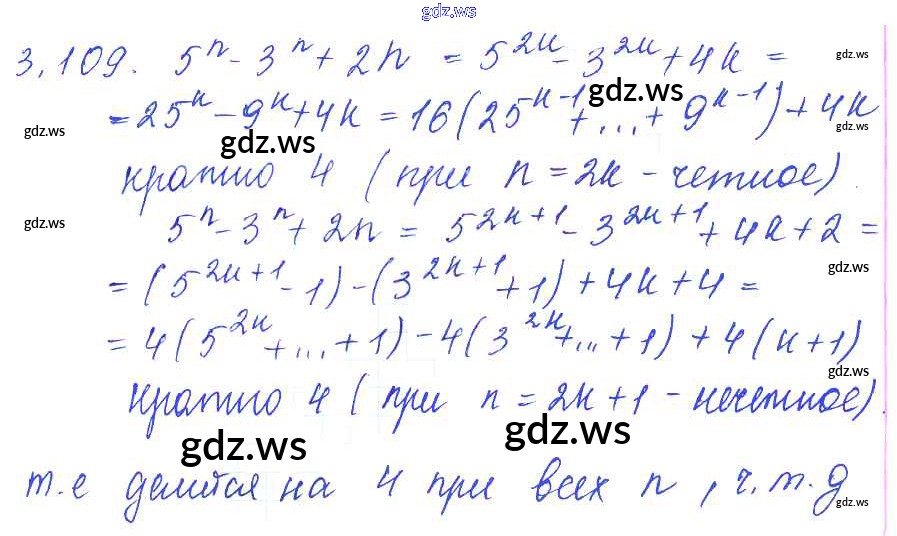 gdz.ws
3.109. 5^n - 3^n + 2n = 5^{2k} - 3^{2k} + 4k = gdz.ws
gdz.ws = 25^k - 9^k + 4k = 16(25^{k-1} + ... + 9^{k-1}) + 4k gdz.ws gdz.ws gdz.ws
кратно 4 (при n = 2k - четное).
gdz.ws 5^n - 3^n + 2n = 5^{2k+1} - 3^{2k+1} + 4k + 2 =
= (5^{2k+1} - 1) - (3^{2k+1} + 1) + 4k + 4 = gdz.ws
= 4(5^{2k} + ... + 1) - 4(3^{2k} + ... + 1) + 4(k+1)
gdz.ws
кратно 4 (при n = 2k + 1 - нечетное).
gdz.ws gdz.ws
т.е делится на 4 при всех n, ч.т.д gdz.ws